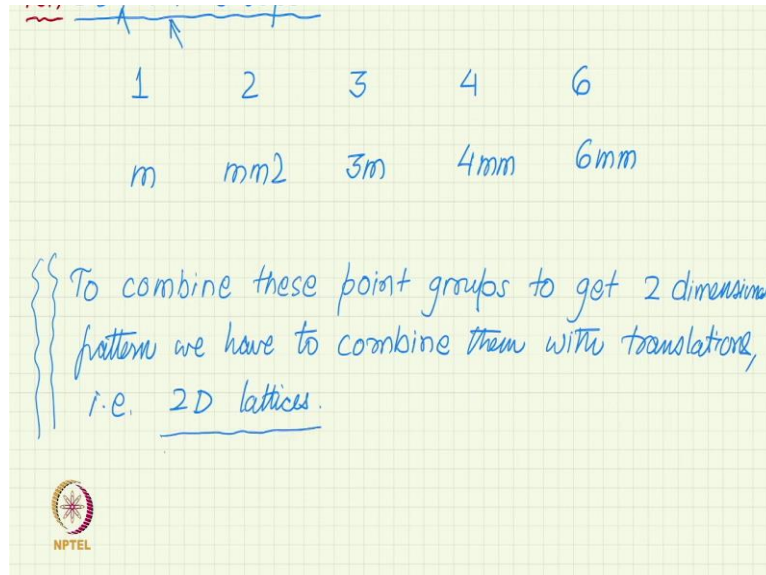 1 2 3 4 6
m mm2 3m 4mm 6mm
To combine these point groups to get 2 dimensiona
pattern we have to combine them with translations,
i.e. 2D lattices.
NPTEL